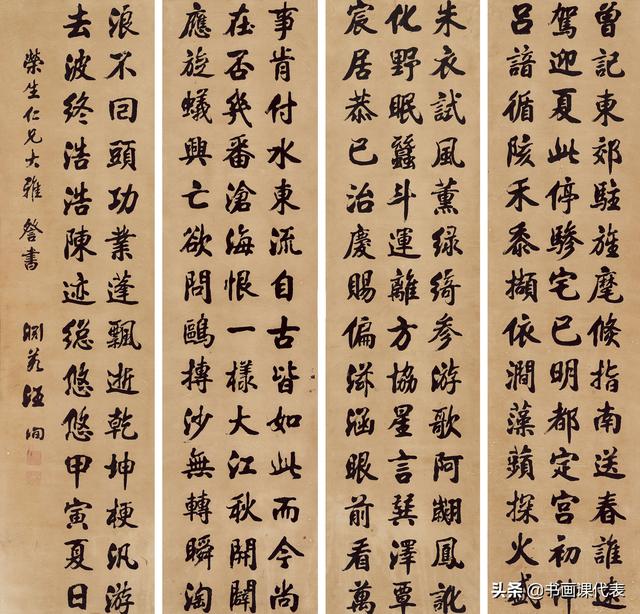 曾記東郊駐旌麾倏指南送春誰
駕迎夏此停驂宅已明都定宮初
呂諳循陔禾黍擷依澗藻蘋探火
朱衣試風薰綠綺參游歌阿翽鳳訛
化野眠蠶斗運離方協星言巽澤覃
宸居恭已治慶賜偏滋涵眼前看萬
事肯付水東流自古皆如此而今尚
在否幾番滄海恨一樣大江秋開闢
應旋蟻興亡欲問鷗摶沙無轉瞬淘
浪不回頭功業蓬飄逝乾坤梗汎游
去波終浩浩陳迹總悠悠甲寅夏日
榮生仁兄大雅 詧書 淵若汪洵
头条 @书画课代表